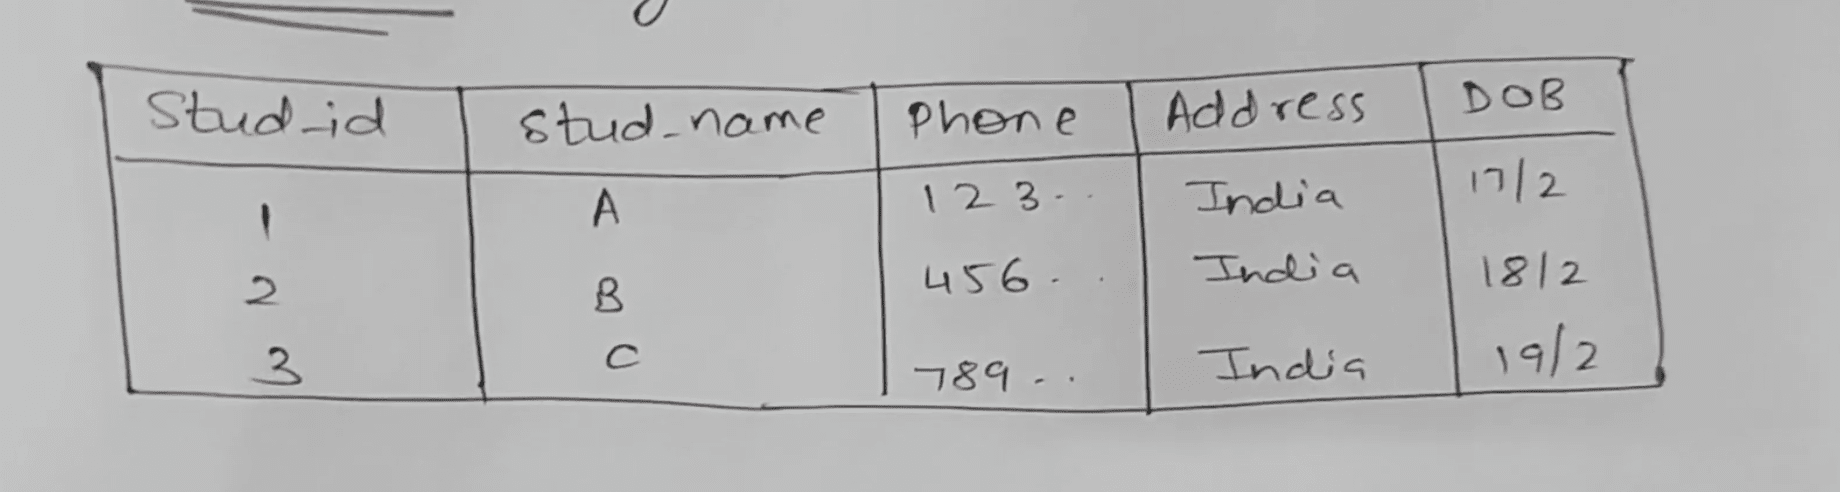 Stud_id stud_name Phone Address DOB
1 A 123.. India 17/2
2 B 456.. India 18/2
3 C 789.. India 19/2